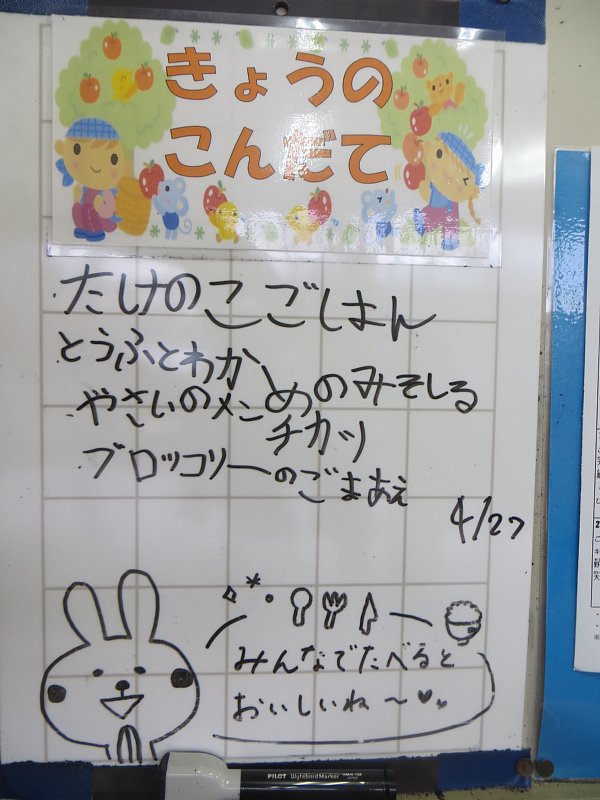 きょうの
こんだて
たけのこごはん
とうふとわかめのみそしる
やさいのメンチカツ
ブロッコリーのごまあえ
4/27
みんなでたべると
おいしいね〜♥♥
PILOT WyteboardMarker